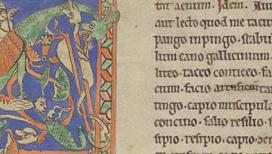 tit acutum. Item.
aut lecto quod me tacun
pango inpingo. stabul
lum cano gallicinium.
luteo. taceo conticeo. fa
cium. facio artificium
tingo. capio muscipula
concino. salio resilio.
sipio. respio. capio occi